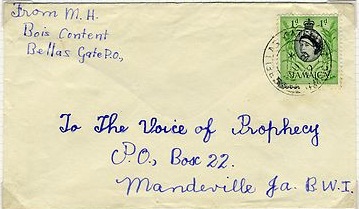 From M. H.
Bois Content
Bellas Gate P.O.,
1d 1d
JAMAICA
BELLAS GATE
To The Voice of Prophecy
P.O., Box 22.
Mandeville Ja. B.W.I.